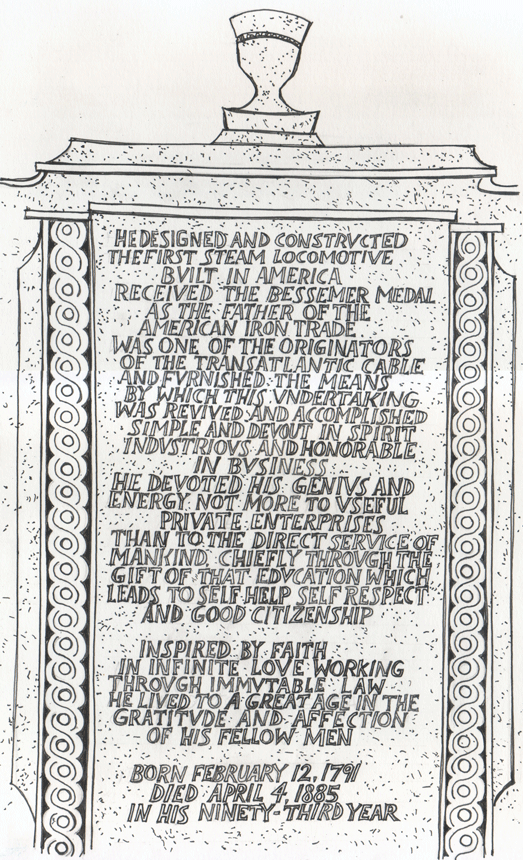 HE DESIGNED AND CONSTRVCTED
THE FIRST STEAM LOCOMOTIVE
BVILT IN AMERICA
RECEIVED THE BESSEMER MEDAL
AS THE FATHER OF THE
AMERICAN IRON TRADE
WAS ONE OF THE ORIGINATORS
OF THE TRANSATLANTIC CABLE
AND FVRNISHED THE MEANS
BY WHICH THIS VNDERTAKING
WAS REVIVED AND ACCOMPLISHED
SIMPLE AND DEVOUT IN SPIRIT
INDVSTRIOVS AND HONORABLE
IN BVSINESS
HE DEVOTED HIS GENIVS AND
ENERGY NOT MORE TO VSEFUL
PRIVATE ENTERPRISES
THAN TO THE DIRECT SERVICE OF
MANKIND, CHIEFLY THROVGH THE
GIFT OF THAT EDVCATION WHICH
LEADS TO SELF HELP SELF RESPECT
AND GOOD CITIZENSHIP
INSPIRED BY FAITH
IN INFINITE LOVE WORKING
THROVGH IMMVTABLE LAW
HE LIVED TO A GREAT AGE IN THE
GRATITVDE AND AFFECTION
OF HIS FELLOW MEN
BORN FEBRUARY 12, 1791
DIED APRIL 4, 1885
IN HIS NINETY-THIRD YEAR